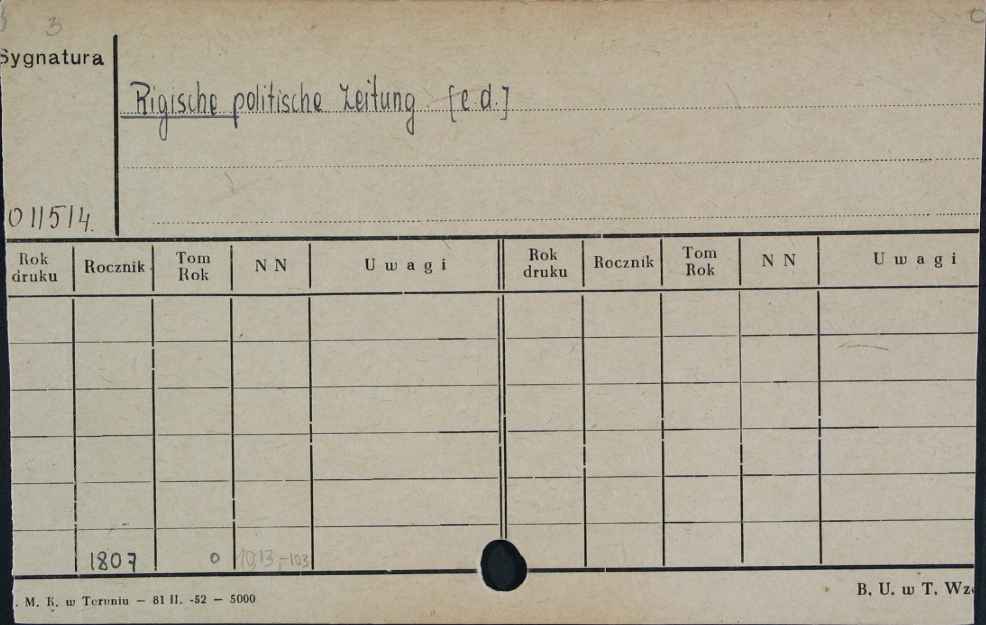 3
Sygnatura
Rigische politische Zeitung [e.d.]
011514.
Rok druku Rocznik Tom Rok N N U w a g i Rok druku Rocznik Tom Rok N N U w a g i
1807 0
. M. K. w Toruniu — 81 II. -52 — 5000
B. U. w T. Wz